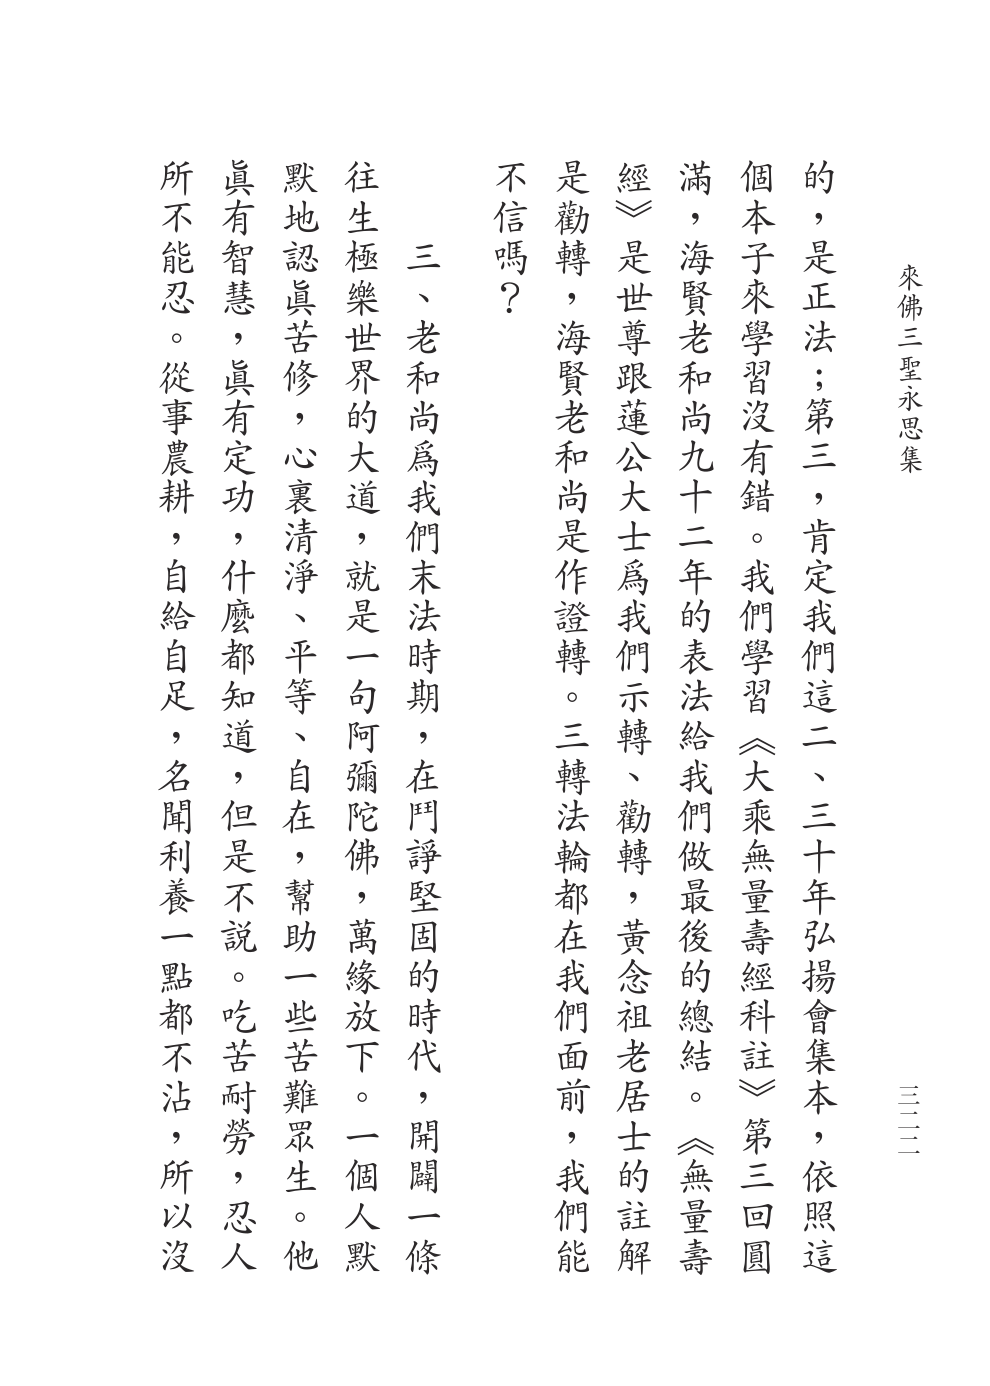 來佛三聖永思集
三二二
的，是正法；第三，肯定我們這二、三十年弘揚會集本，依照這
個本子來學習沒有錯。我們學習《大乘無量壽經科註》第三回圓
滿，海賢老和尚九十二年的表法給我們做最後的總結。《無量壽
經》是世尊跟蓮公大士爲我們示轉、勸轉，黃念祖老居士的註解
是勸轉，海賢老和尚是作證轉。三轉法輪都在我們面前，我們能
不信嗎？
三、老和尚爲我們末法時期，在鬥諍堅固的時代，開闢一條
往生極樂世界的大道，就是一句阿彌陀佛，萬緣放下。一個人默
默地認眞苦修，心裏清淨、平等、自在，幫助一些苦難眾生。他
眞有智慧，眞有定功，什麼都知道，但是不說。吃苦耐勞，忍人
所不能忍。從事農耕，自給自足，名聞利養一點都不沾，所以沒